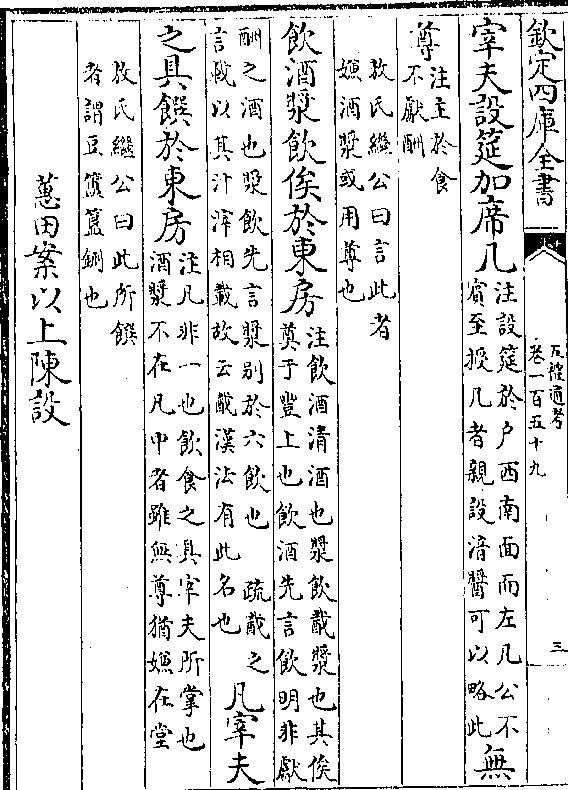 欽定四庫全書
五禮通考
卷一百五十九
三
宰夫設筵加席几注設筵於户西南面而左几公不
賓至授几者親設湇醬可以略此無
尊注主於食
不獻酬
敖氏繼公曰言此者
嫌酒漿或用尊也
飲酒漿飲俟於東房注飲酒清酒也漿飲胾漿也其俟
奠于豐上也飲酒先言飲明非獻
酬之酒也漿飲先言漿别於六飲也 疏胾之
言胾以其汁滓相載故云胾漢法有此名也 凡宰夫
之具饌於東房注凡非一也飲食之具宰夫所掌也
酒漿不在凡中者雖無尊猶嫌在堂
敖氏繼公曰此所饌
者謂豆簠簋鉶也
蕙田案以上陳設